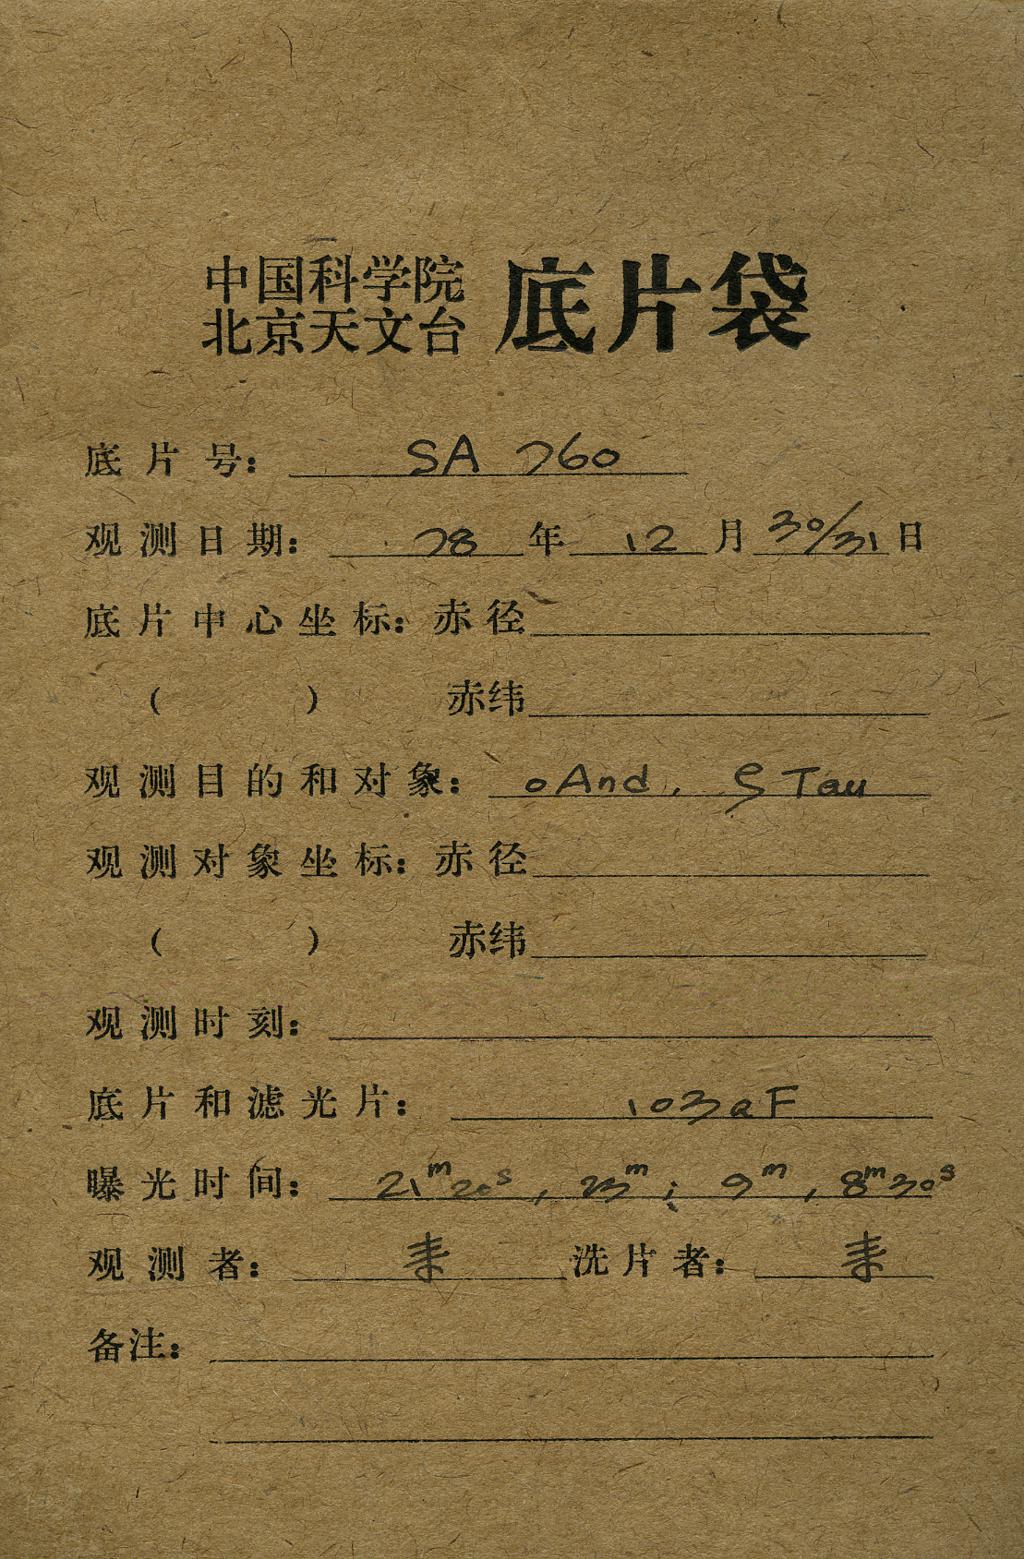 中国科学院
北京天文台 底片袋
底片号： SA 760
观测日期： 78 年 12 月 30/31 日
底片中心坐标：赤径
（ ） 赤纬
观测目的和对象： o And, ζ Tau
观测对象坐标：赤径
（ ） 赤纬
观测时刻：
底片和滤光片： 103aF
曝光时间： 21ᵐ20ˢ, 23ᵐ; 9ᵐ, 8ᵐ30ˢ
观测者： 洗片者：
备注：